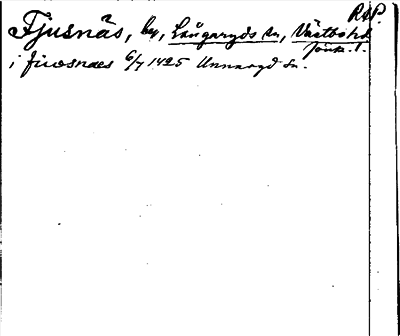 RAP.
Fjusnäs, by, Långaryds sn, Västbo hd
Jönk. l.
i fiwsnaes 6/7 1425 Unnaryd sn.